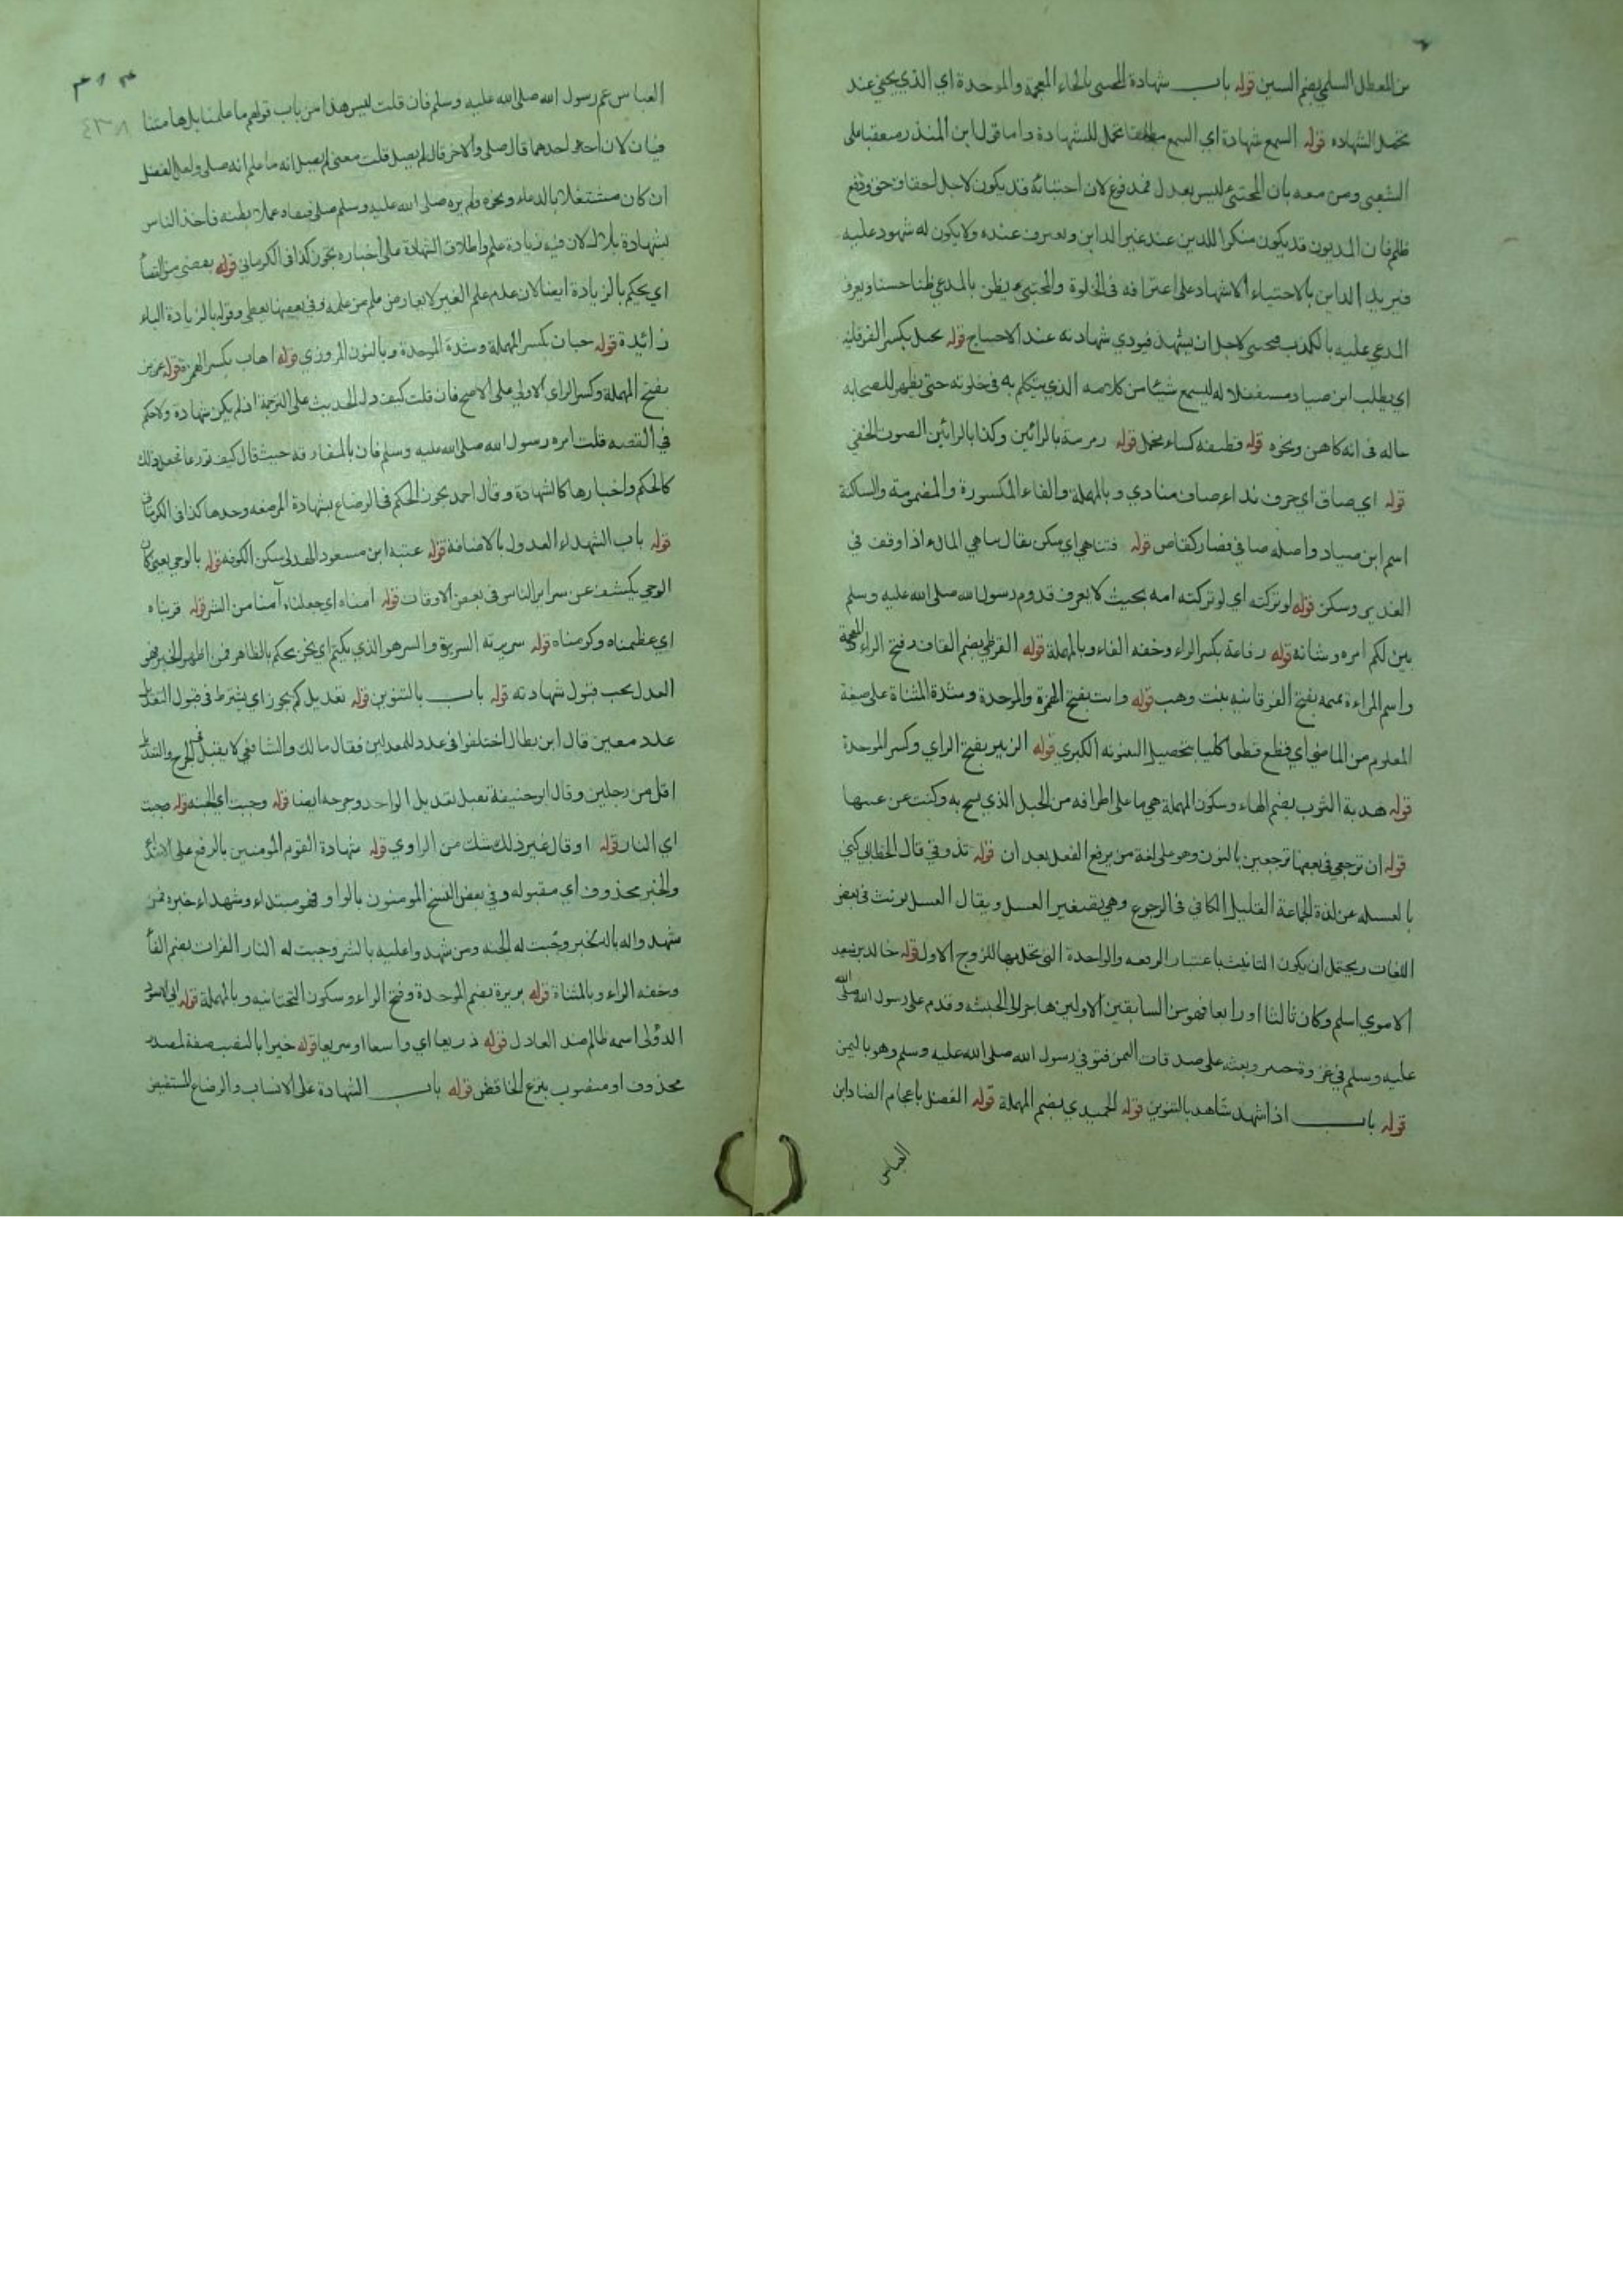 بن المعطل السلمي بضم السين قوله باب شهادة المختبي بالخاء المعجمة والموحدة اي الذي يختفي عند
تحمل الشهاده قوله السمع شهادة اي السمع مطلقا تحمل للشهادة واما قول ابن المنذر معقبا على
الشعبى ومن معه بان المختبئ ليس بعدل فمدفوع لان اختبائه قد يكون لاجل احقاق حق ودفع
ظلم فان المديون قد يكون منكرا للدين عند غير الداين ويعترف عنده ولا يكون له شهود عليه
فيريد الداين بالاختباء الاشهاد على اعترافه فى الخلوة والمختبئ يظن بالمدعي ظنا حسنا ويعرف
المدعي عليه بالكذب فيختبي لاجل ان يشهد فيودي شهادته عند الاحتياج قوله يختل بكسر الفوقانية
اي يطلب ابن صياد مستغفلا له ليسمع شيئا من كلامه الذي يتكلم به فى خلوته حتى يظهر للصحابه
حاله فى انه كاهن ونحوه قوله قطيفه كساء مخمل قوله رمرمة بالرائين وكذا بالزائين الصوت الخفي
قوله اي صاف اي حرف نداء وصاف منادي وبالمهملة والفاء المكسورة والمضمومة والساكنة
اسم ابن صياد واصله صافي فصار كقاض قوله فتناهي اي سكن يقال تناهي الماء اذا وقف في
الغدير وسكن قوله لو تركته اي لو تركته امه بحيث لا يعرف قدوم رسول الله صلى الله عليه وسلم
بين لكم امره وشانه قوله رفاعة بكسر الراء وخفه الفاء وبالمهملة قوله القرظي بضم القاف وفتح الراء المعجمة
واسم المراءة تميمه بفتح الفوقانيه بنت وهب قوله وابت بفتح الهمزة والموحدة وشدة المثناة على صيغة
المعلوم من الماضي اي قطع قطعا كليا بتحصيل البينونه الكبري قوله الزبير بفتح الزاي وكسر الموحدة
قوله هدبة الثوب بضم الهاء وسكون المهملة هي ما على اطرافه من الخيل الذي وكنت عن عينها
قوله ان ترجعي فى بعضها ترجعين بالنون وهو على لغة من يرفع الفعل بعد ان قوله تذوقي قال الخطابي كني
بالعسيله عن لذة الجماعة القليل الكافي فى الرجوع وهي تصغير العسل ويقال العسل يونث فى بعض
اللغات ويحتمل ان يكون التانيث باعتبار الدفعه والواحدة التى تحل بها للزوج الاول قوله خالد بن سعيد
الاموي اسلم وكان ثالثا او رابعا فهو من السابقين الاولين هاجر الى الحبشه وقدم على رسول الله صلى الله
عليه وسلم في غزوة خيبر وبعثه على صدقات اليمن فتوفي رسول الله صلى الله عليه وسلم وهو باليمن
قوله باب اذا شهد شاهد بالتنوين قوله الحميدي بضم المهملة قوله الفضل باعجام الضاد ابن
العباس
العباس عم رسول الله صلى الله عليه وسلم فان قلت ليس هذا من باب قولهم ما علمنا بل هما متنا
فيان لان احدهما قال صلى والاخر قال لم يصل قلت معنى لم يصل انه ما علم انه صلى ولعل الفضل
ان كان مشتغلا بالدعاء ونحوه ولم يره صلى الله عليه وسلم صلى فنفاه عملا بظنه فاخذ الناس
بشهادة بلال لان فيه زيادة علم واطلاق الشهادة على اخباره تجوز كذا فى الكرماني قوله يعضى
اي يحكم بالزيادة ايضا لان عدم علم الغير لا يعارض علم من علمه وفي بعضها يعطى وقوله بالزيادة الباء
زائدة قوله حبان بكسر المهملة وشدة الموحدة وبالنون المروزي قوله اهاب بكسر الهمزة قوله عزيز
بفتح المهملة وكسر الزاي الاولى على الاصح فان قلت كيف دل الحديث على الترجمة اذ لم يكن شهادة ولا حكم
في القصه قلت امره رسول الله صلى الله عليه وسلم فان بالمفارقه حيث قال كيف تورعا فجعل ذلك
كالحكم واخبارها كالشهادة وقال احمد يجوز الحكم فى الرضاع بشهادة المرضعه وحدها كذا فى الكرماني
قوله باب الشهداء العدول بالاضافة قوله عتبه ابن مسعود الهذلي سكن الكوفه قوله بالوحي يعني كان
الوحي يكشف عن سراير الناس فى بعض الاوقات قوله امناه اي جعلناه آمنا من الشر قوله قربناه
اي عظمناه وكرمناه قوله سريرته السريرة والسر هو الذي يكتم اي نحن نحكم بالظاهر فمن اظهر الخير فهو
العدل يجب قبول شهادته قوله باب بالتنوين قوله تعديل كم يجوز اي يشترط فى قبول التعديل
عدد معين قال ابن بطال اختلفوا فى عدد المعدلين فقال مالك والشافعي لا يقبل فى الجرح والتعديل
اقل من رجلين وقال ابو حنيفة تقبل تعديل الواحد وجرحه ايضا قوله وجبت اي الجنه قوله وجبت
اي النار قوله او قال غير ذلك شك من الراوي قوله شهادة القوم المؤمنين بالرفع على الابتداء
والخبر محذوف اي مقبوله وفي بعض النسخ المومنون بالواو فهو مبتداء وشهداء خبره فمن
شهدوا له بالخير وجبت له الجنه ومن شهدوا عليه بالشر وجبت له النار الفرات بضم الفاء
وخفه الراء وبالمثناة قوله بريدة بضم الموحدة وفتح الراء وسكون التحتانيه وبالمهملة قوله ابى الاسود
الدؤلى اسمه ظالم ضد العادل قوله ذريعا اي واسعا او سريعا قوله خيرا بالنصب صفة لمصدر
محذوف او منصوب بنزع الخافض قوله باب الشهادة على الانساب والرضاع المستفيض